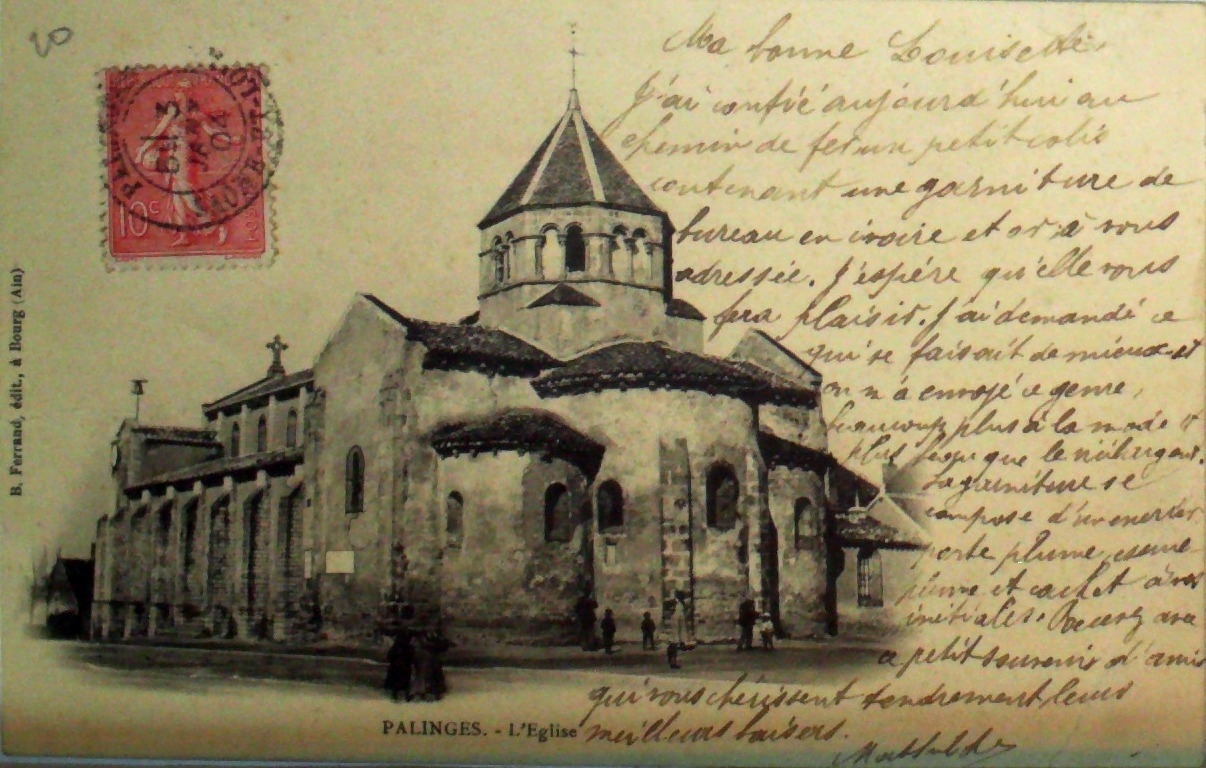 20
10c
04
B. Ferrand, édit., à Bourg (Ain)
Ma bonne Louisette,
J'ai confié aujourd'hui au
chemin de fer un petit colis
contenant une garniture de
bureau en ivoire et or à vous
adressée. J'espère qu'elle vous
fera plaisir. J'ai demandé ce
qui se faisait de mieux et
on m'a envoyé ce genre,
beaucoup plus à la mode et
plus que le
La garniture se
compose d'un encrier
porte plume, essuie
plume et cachet à vos
initiales. Recevez avec
ce petit souvenir d'amis
qui vous chérissent tendrement, leurs
meilleurs baisers.
Mathilde
PALINGES. - L'Eglise